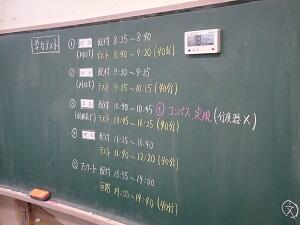 学力テスト
① 配付 8:35〜8:40
テスト 8:40〜9:20 (40分)
② 配付 9:30〜9:35
テスト 9:35〜10:15 (40分)
③ 配付 10:40〜10:45 コンパス 定規 (分度器×)
テスト 10:45〜11:25 (40分)
④ 配付 11:35〜11:40
テスト 11:40〜12:20 (40分)
アンケート 配付 13:55〜14:00
14:00〜14:40 (40分)